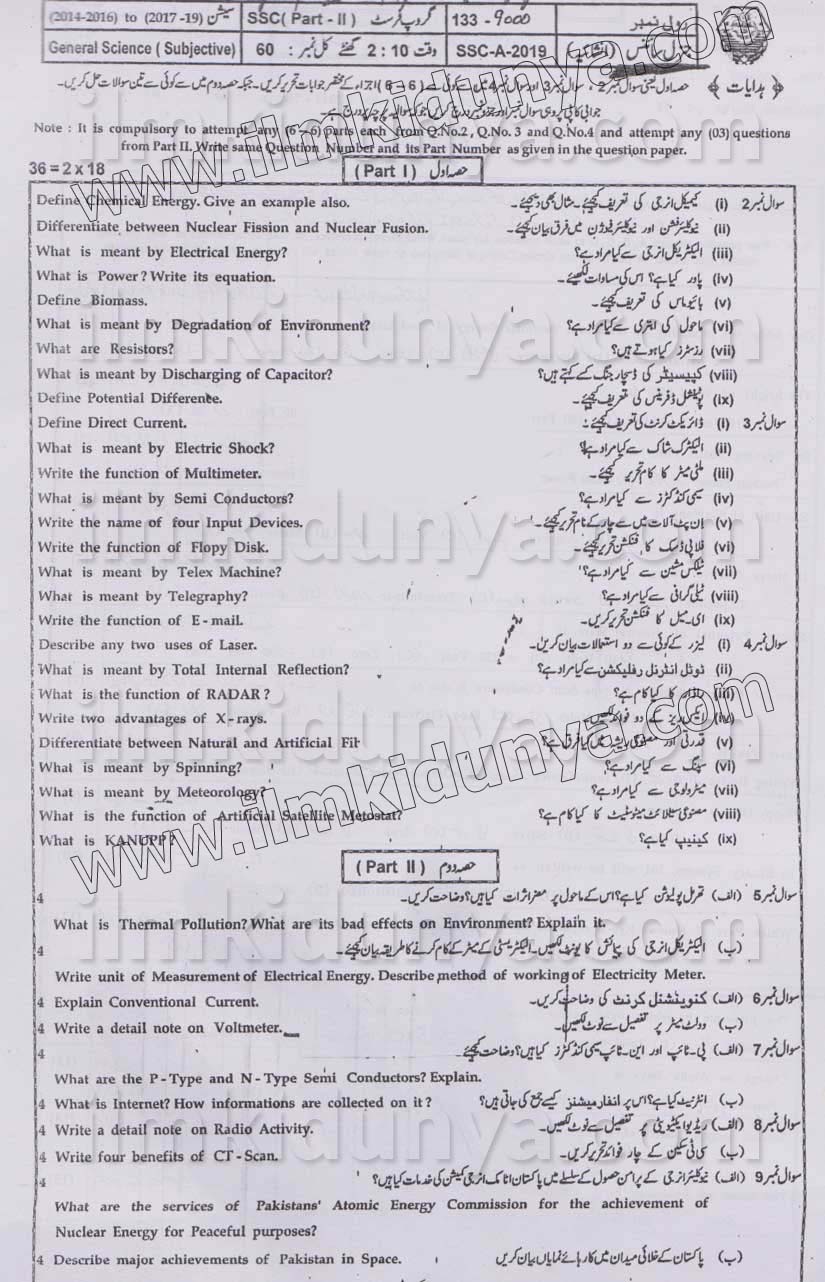 (2014-2016) to (2017-19) سیشن SSC( Part - II ) گروپ فرسٹ 133 - 9000 رولی نمبر
General Science ( Subjective) کل نمبر : 60 وقت 2 : 10 گھنٹے SSC-A-2019 جنرل سائنس (انشائیہ)
﴿ ہدایات ﴾ حصہ اول یعنی سوال نمبر 2 ، سوال نمبر 3 اور سوال نمبر 4 میں سے کوئی سے ( 6 - 6 ) اجزاء کے مختصر جوابات تحریر کریں۔ جبکہ حصہ دوم میں سے کوئی سے تین سوالات حل کریں۔
جوابی کاپی پر وہی سوال نمبر اور جزو نمبر درج کریں جو کہ سوالیہ پرچے پر درج ہے۔
Note : It is compulsory to attempt any (6 - 6) parts each from Q.No.2 , Q.No. 3 and Q.No.4 and attempt any (03) questions
from Part II. Write same Question Number and its Part Number as given in the question paper.
36 = 2 x 18 (Part I) حصہ اول
Define Chemical Energy. Give an example also. سوال نمبر 2 (i) کیمیکل انرجی کی تعریف کیجئے۔ مثال بھی دیجئے۔
Differentiate between Nuclear Fission and Nuclear Fusion. (ii) نیوکلیئر فشن اور نیوکلیئر فیوژن میں فرق بیان کیجئے۔
What is meant by Electrical Energy? (iii) الیکٹریکل انرجی سے کیا مراد ہے؟
What is Power? Write its equation. (iv) پاور کیا ہے؟ اس کی مساوات لکھئے۔
Define Biomass. (v) بائیوماس کی تعریف کیجئے۔
What is meant by Degradation of Environment? (vi) ماحول کی ابتری سے کیا مراد ہے؟
What are Resistors? (vii) رزسٹرز کیا ہوتے ہیں؟
What is meant by Discharging of Capacitor? (viii) کیپیسیٹر کی ڈسچارجنگ کسے کہتے ہیں؟
Define Potential Difference. (ix) پوٹینشل ڈفرینس کی تعریف کیجئے۔
Define Direct Current. سوال نمبر 3 (i) ڈائریکٹ کرنٹ کی تعریف کیجئے۔
What is meant by Electric Shock? (ii) الیکٹرک شاک سے کیا مراد ہے؟
Write the function of Multimeter. (iii) ملٹی میٹر کا کام تحریر کیجئے۔
What is meant by Semi Conductors? (iv) سیمی کنڈکٹرز سے کیا مراد ہے؟
Write the name of four Input Devices. (v) ان پٹ آلات میں سے چار کے نام تحریر کیجئے۔
Write the function of Flopy Disk. (vi) فلاپی ڈسک کا فنکشن تحریر کیجئے۔
What is meant by Telex Machine? (vii) ٹیلکس مشین سے کیا مراد ہے؟
What is meant by Telegraphy? (viii) ٹیلی گرافی سے کیا مراد ہے؟
Write the function of E - mail. (ix) ای۔میل کا فنکشن تحریر کریں۔
Describe any two uses of Laser. سوال نمبر 4 (i) لیزر کے کوئی سے دو استعمالات بیان کریں۔
What is meant by Total Internal Reflection? (ii) ٹوٹل انٹرنل رفلیکشن سے کیا مراد ہے؟
What is the function of RADAR ? (iii) راڈار کا کیا کام ہے؟
Write two advantages of X - rays. (iv) ایکس ریز کے دو فوائد لکھیں۔
Differentiate between Natural and Artificial Fib (v) قدرتی اور مصنوعی ریشہ میں کیا فرق ہے؟
What is meant by Spinning? (vi) سپننگ سے کیا مراد ہے؟
What is meant by Meteorology? (vii) میٹرولوجی سے کیا مراد ہے؟
What is the function of Artificial Satellite Metostat? (viii) مصنوعی سیٹلائٹ میٹوسٹیٹ کا کیا کام ہے؟
What is KANUPP? (ix) کینپ کیا ہے؟
(Part II) حصہ دوم
4 سوال نمبر 5 (الف) تھرمل پولیوشن کیا ہے؟ اس کے ماحول پر مضر اثرات کیا ہیں؟ وضاحت کریں۔
What is Thermal Pollution? What are its bad effects on Environment? Explain it.
4 (ب) الیکٹریکل انرجی کی پیمائش کا یونٹ لکھیں۔ الیکٹریسٹی کے میٹر کے کام کرنے کا طریقہ بیان کیجئے۔
Write unit of Measurement of Electrical Energy. Describe method of working of Electricity Meter.
4 Explain Conventional Current. سوال نمبر 6 (الف) کنوینشنل کرنٹ کی وضاحت کریں۔
4 Write a detail note on Voltmeter. (ب) وولٹ میٹر پر تفصیل سے نوٹ لکھیں۔
4 سوال نمبر 7 (الف) پی۔ٹائپ اور این۔ٹائپ سیمی کنڈکٹرز کیا ہیں؟ وضاحت کیجئے۔
What are the P - Type and N - Type Semi Conductors? Explain.
4 What is Internet? How informations are collected on it ? (ب) انٹرنیٹ کیا ہے؟ اس پر انفارمیشنز کیسے جمع کی جاتی ہیں؟
4 Write a detail note on Radio Activity. سوال نمبر 8 (الف) ریڈیو ایکٹیویٹی پر تفصیل سے نوٹ لکھیں۔
4 Write four benefits of CT - Scan. (ب) سی ٹی سکین کے چار فوائد تحریر کریں۔
4 سوال نمبر 9 (الف) نیوکلیئر انرجی کے پرامن حصول کے سلسلے میں پاکستان اٹامک انرجی کمیشن کی خدمات کیا ہیں؟
What are the services of Pakistans' Atomic Energy Commission for the achievement of
Nuclear Energy for Peaceful purposes?
4 Describe major achievements of Pakistan in Space. (ب) پاکستان کے خلائی میدان میں کارہائے نمایاں بیان کریں
www.ilmkidunya.com
www.ilmkidunya.com
ilmkidunya.com
ilmkidunya.com
ilmkidunya.com
ilmkidunya.com
ilmkidunya.com
ilmkidunya.com